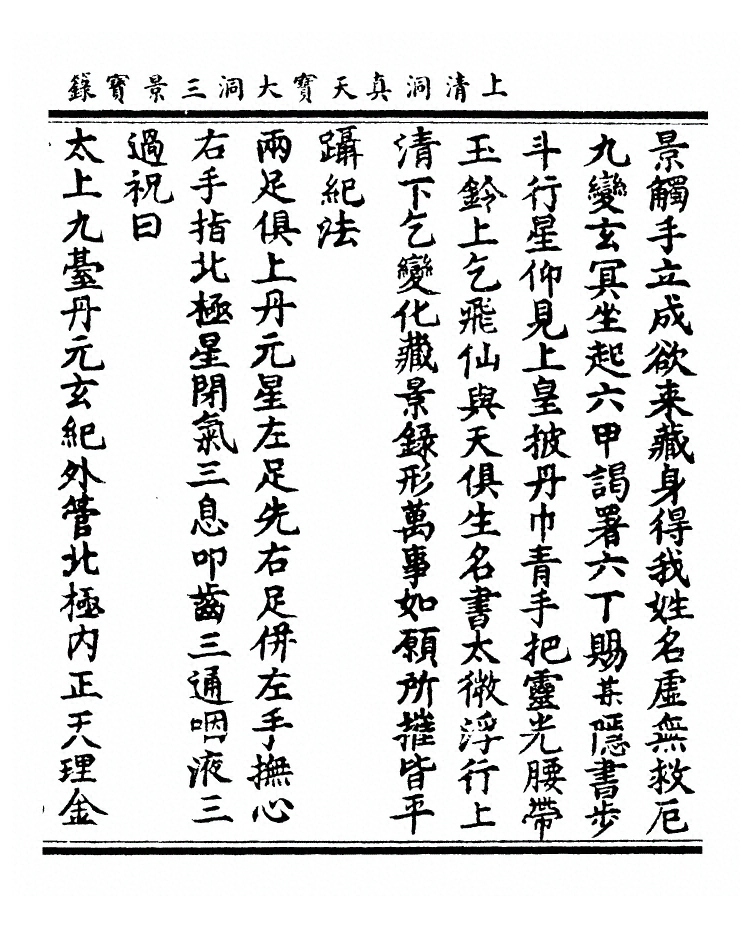 上清洞真天寶大洞三景寶籙
景觸手立成欲来藏身得我姓名虛無救厄
九變玄冥坐起六甲謁署六丁賜某隱書步
斗行星仰見上皇披丹巾青手把靈光腰帶
玉鈴上乞飛仙與天俱生名書太微浮行上
清下乞變化藏景錄形萬事如願所摧皆平
躡紀法
兩足俱上丹元星左足先右足併左手撫心
右手指北極星閉氣三息叩齒三通咽液三
過祝曰
太上九臺丹元玄紀外管北極內正天人理金